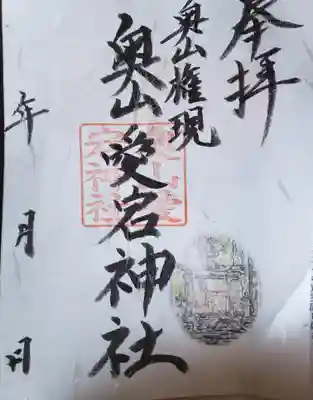 奉拝
奥山権現
奥山愛宕神社
年 月 日